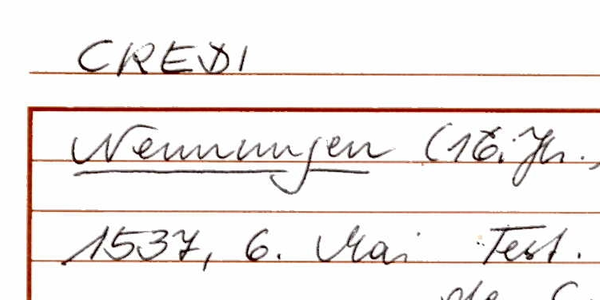 CREDI
Nennungen (16. Jh.,
1537, 6. Mai Test.
de C